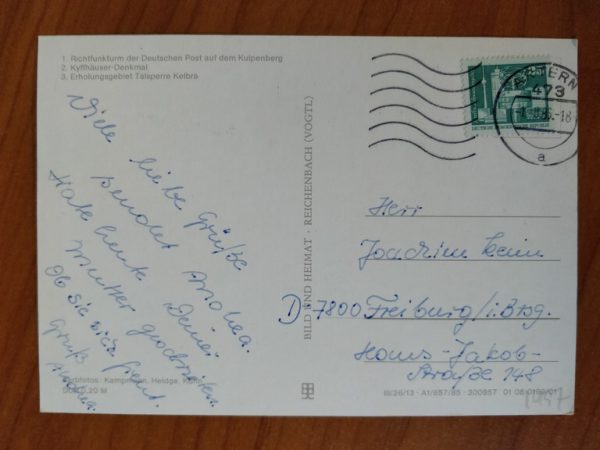 1. Richtfunkturm der Deutschen Post auf dem Kulpenberg
2. Kyffhäuser-Denkmal
3. Erholungsgebiet Talsperre Kelbra
Viele liebe Grüße
sendet Andrea.
Habe heute Deiner
Mutter geschrieben.
Ob sie sich freut.
Gruß
Andrea.
Farbfotos: Kampmann, Heldge,
BILD UND HEIMAT · REICHENBACH (VOGTL)
ARTERN
473
-18
a
Herr
Joachim
D-7800 Freiburg/i. Brsg.
Hans-Jakob-
Straße 148
III/26/13 · A1/857/85 · 200957 01 08 0190/01